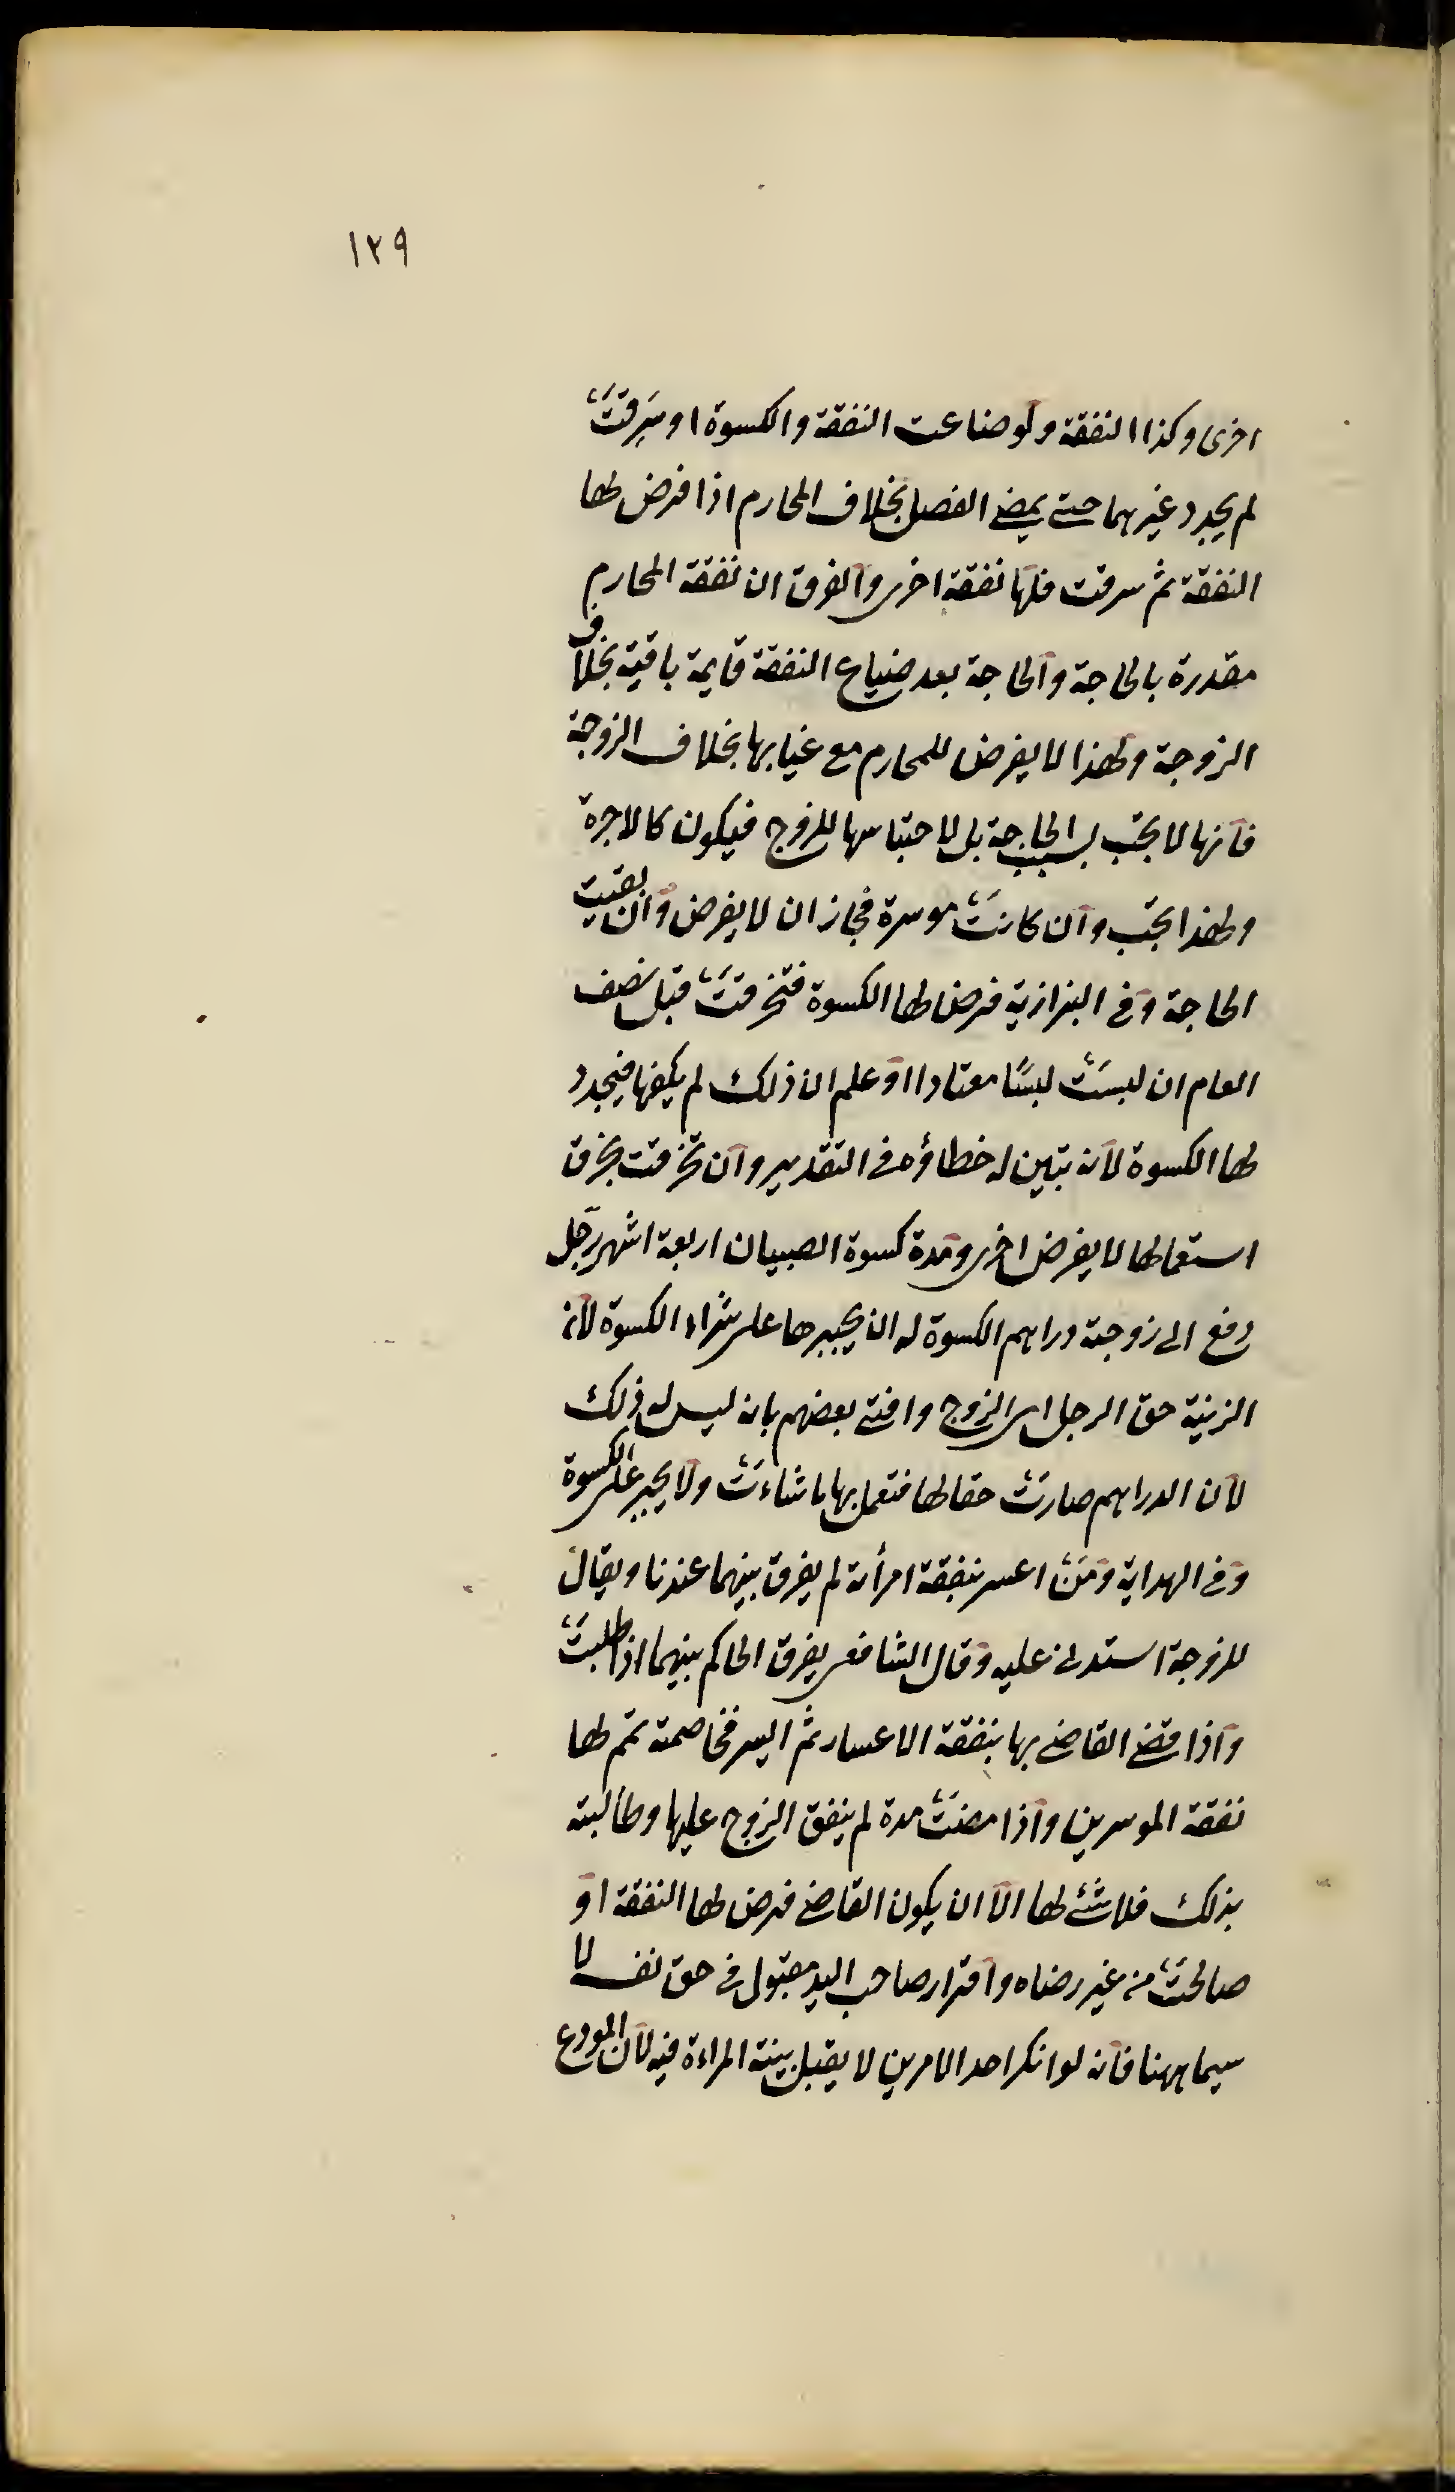 ١٢٩
اخرى وكذا النفقة ولو ضاعت النفقة والكسوة او سرقت
لم يجدد غيرهما حتى يمضي الفصل بخلاف المحارم اذا فرض لها
النفقة ثم سرقت فلها نفقة اخرى والفرق ان نفقة المحارم
مقدرة بالحاجة والحاجة بعد ضياع النفقة قايمة باقية بخلاف
الزوجة ولهذا لا يفرض للمحارم مع غيابها بخلاف الزوجة
فانها لا يجب بسبب الحاجة بل لاحتباسها للزوج فيكون كالاجرة
ولهذا يجب وان كانت موسرة فجاز ان لا يفرض وان بقيت
الحاجة وفي البزازية فرض لها الكسوة فتخرقت قبل نصف
العام ان لبست لبسًا معتادا او علم ان ذلك لم يكفها فيجدد
لها الكسوة لانه تبين له خطاؤه في التقدير وان تخرقت بخرق
استعمالها لا يفرض اخرى ومدة كسوة الصبيان اربعة اشهر رجل
دفع الى زوجته دراهم الكسوة له ان يجبرها على شراء الكسوة لانه
الزينة حق الرجل اى الزوج وافتى بعضهم بانه ليس له ذلك
لان الدراهم صارت حقا لها فتعمل بها ما شاءت ولا يجبر على الكسوة
وفي الهداية ومن اعسر بنفقة امرأته لم يفرق بينهما عندنا ويقال
للزوجة استدني عليه وقال الشافعى يفرق الحاكم بينهما اذا طلبت
واذا قضى القاضي بها بنفقة الاعسار ثم ايسر فخاصمته تمم لها
نفقة الموسرين واذا مضت مدة لم ينفق الزوج عليها وطالبته
بذلك فلا شئ لها الا ان يكون القاضي فرض لها النفقة او
صالحت من غير رضاه واقرار صاحب اليد مقبول في حق نفسه لا
سيما ههنا فانه لو انكر احد الامرين لا يقبل بينة المراءة فيه لان المودع